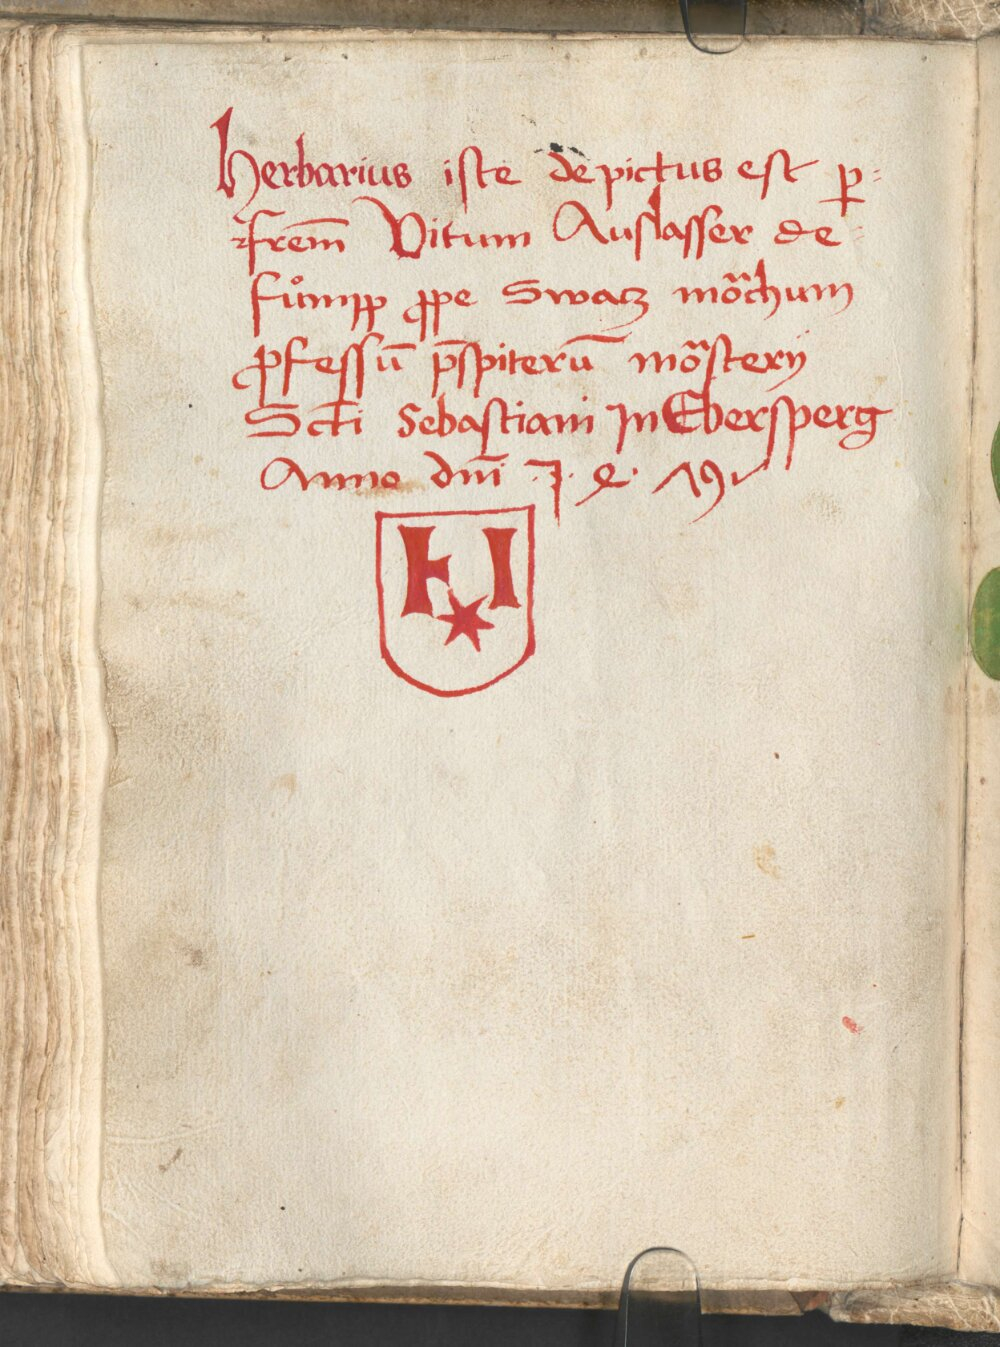 herbarius iste depictus est ꝑ
frēm Vitum Auslasser de
fůmpp ꝓpe Swatz mo͂chum
ꝓfessū p̄spiterū mo͂sterij
Sc̄ti Sebastiani In Ebersperg
Anno dn̄i
H I